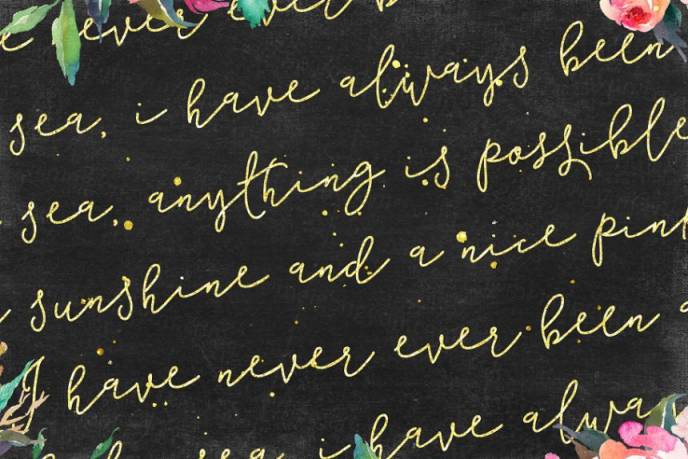 ever ever b
sea, i have always been
sea, anything is possible
sunshine and a nice pin
I have never ever been
sea, i have alwa